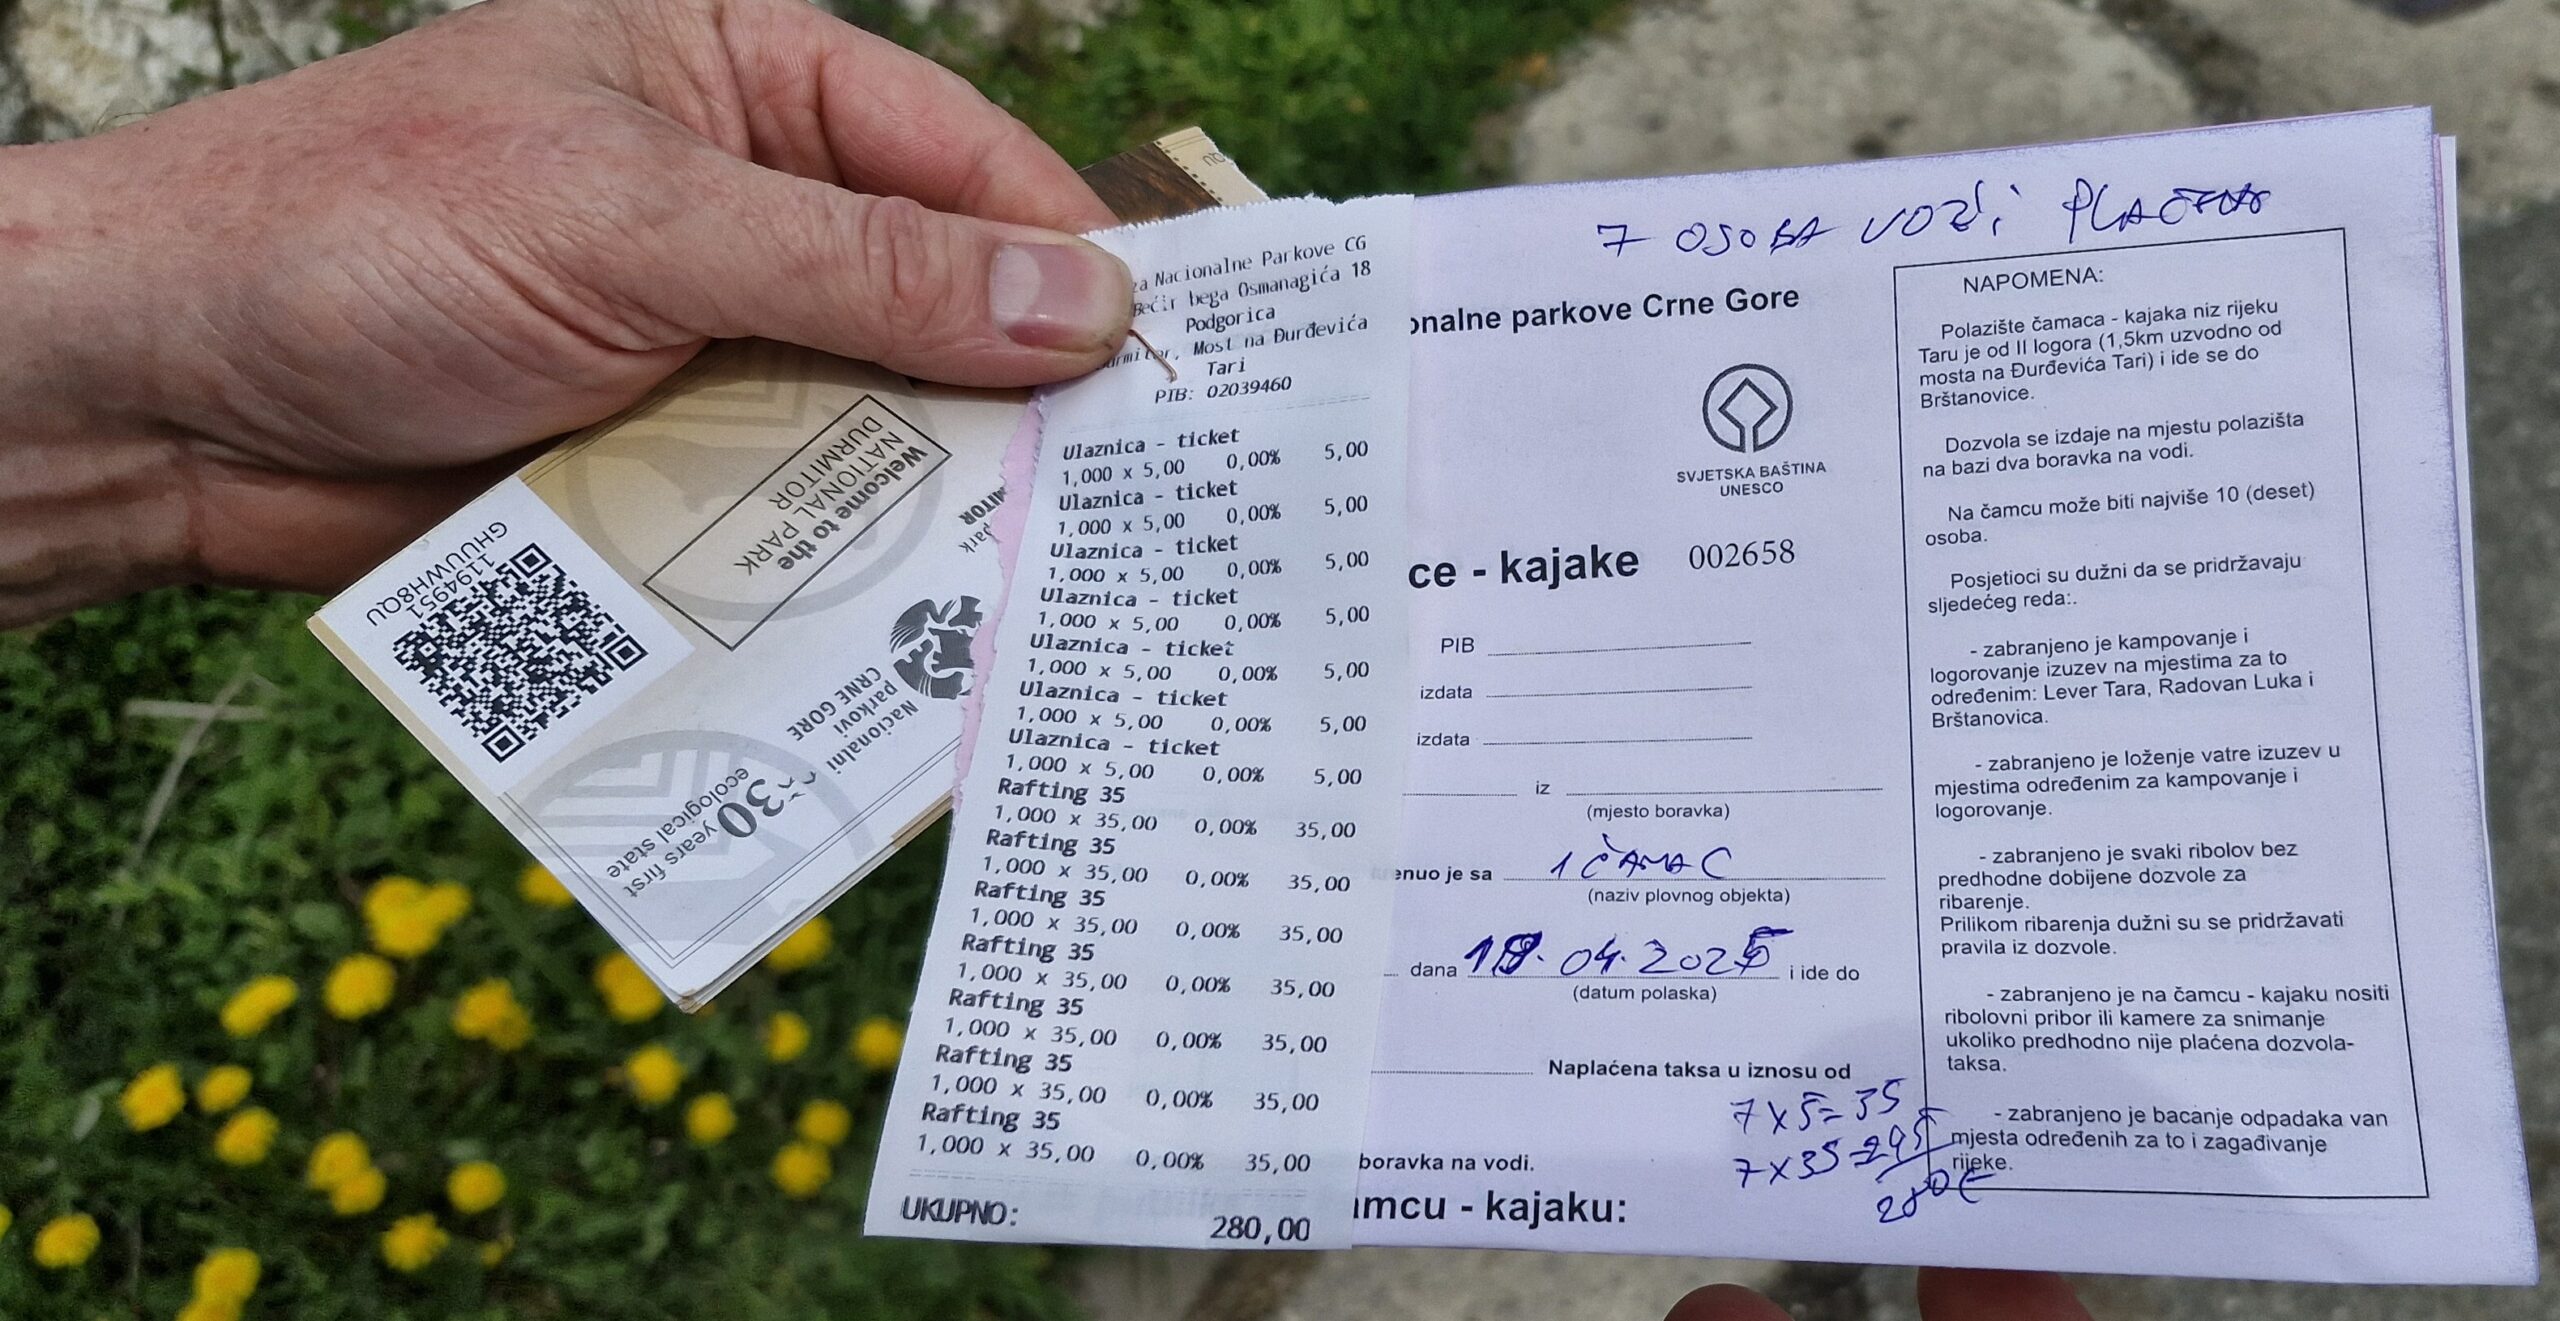 GHUUWH8QU
1194951
Welcome to the
NATIONAL PARK
DURMITOR
Nacionalni
parkovi
CRNE GORE
30 years first
ecological state
za Nacionalne Parkove CG
Bećir bega Osmanagića 18
Podgorica
Most na Đurđevića
Tari
PIB: 02039460
Ulaznica - ticket
1,000 x 5,00 0,00% 5,00
Ulaznica - ticket
1,000 x 5,00 0,00% 5,00
Ulaznica - ticket
1,000 x 5,00 0,00% 5,00
Ulaznica - ticket
1,000 x 5,00 0,00% 5,00
Ulaznica - ticket
1,000 x 5,00 0,00% 5,00
Ulaznica - ticket
1,000 x 5,00 0,00% 5,00
Ulaznica - ticket
1,000 x 5,00 0,00% 5,00
Rafting 35
1,000 x 35,00 0,00% 35,00
Rafting 35
1,000 x 35,00 0,00% 35,00
Rafting 35
1,000 x 35,00 0,00% 35,00
Rafting 35
1,000 x 35,00 0,00% 35,00
Rafting 35
1,000 x 35,00 0,00% 35,00
Rafting 35
1,000 x 35,00 0,00% 35,00
Rafting 35
1,000 x 35,00 0,00% 35,00
UKUPNO: 280,00
7 OSOBA
onalne parkove Crne Gore
SVJETSKA BAŠTINA
UNESCO
ce - kajake 002658
PIB
izdata
izdata
iz
(mjesto boravka)
enuo je sa 1 ČAMAC
(naziv plovnog objekta)
dana 04.2025 i ide do
(datum polaska)
Naplaćena taksa u iznosu od
7x5=35
7x35=245
280€
boravka na vodi.
amcu - kajaku:
NAPOMENA:
Polazište čamaca - kajaka niz rijeku
Taru je od II logora (1,5km uzvodno od
mosta na Đurđevića Tari) i ide se do
Brštanovice.
Dozvola se izdaje na mjestu polazišta
na bazi dva boravka na vodi.
Na čamcu može biti najviše 10 (deset)
osoba.
Posjetioci su dužni da se pridržavaju
sljedećeg reda:.
- zabranjeno je kampovanje i
logorovanje izuzev na mjestima za to
određenim: Lever Tara, Radovan Luka i
Brštanovica.
- zabranjeno je loženje vatre izuzev u
mjestima određenim za kampovanje i
logorovanje.
- zabranjeno je svaki ribolov bez
predhodne dobijene dozvole za
ribarenje.
Prilikom ribarenja dužni su se pridržavati
pravila iz dozvole.
- zabranjeno je na čamcu - kajaku nositi
ribolovni pribor ili kamere za snimanje
ukoliko predhodno nije plaćena dozvola-
taksa.
- zabranjeno je bacanje odpadaka van
mjesta određenih za to i zagađivanje
rijeke.